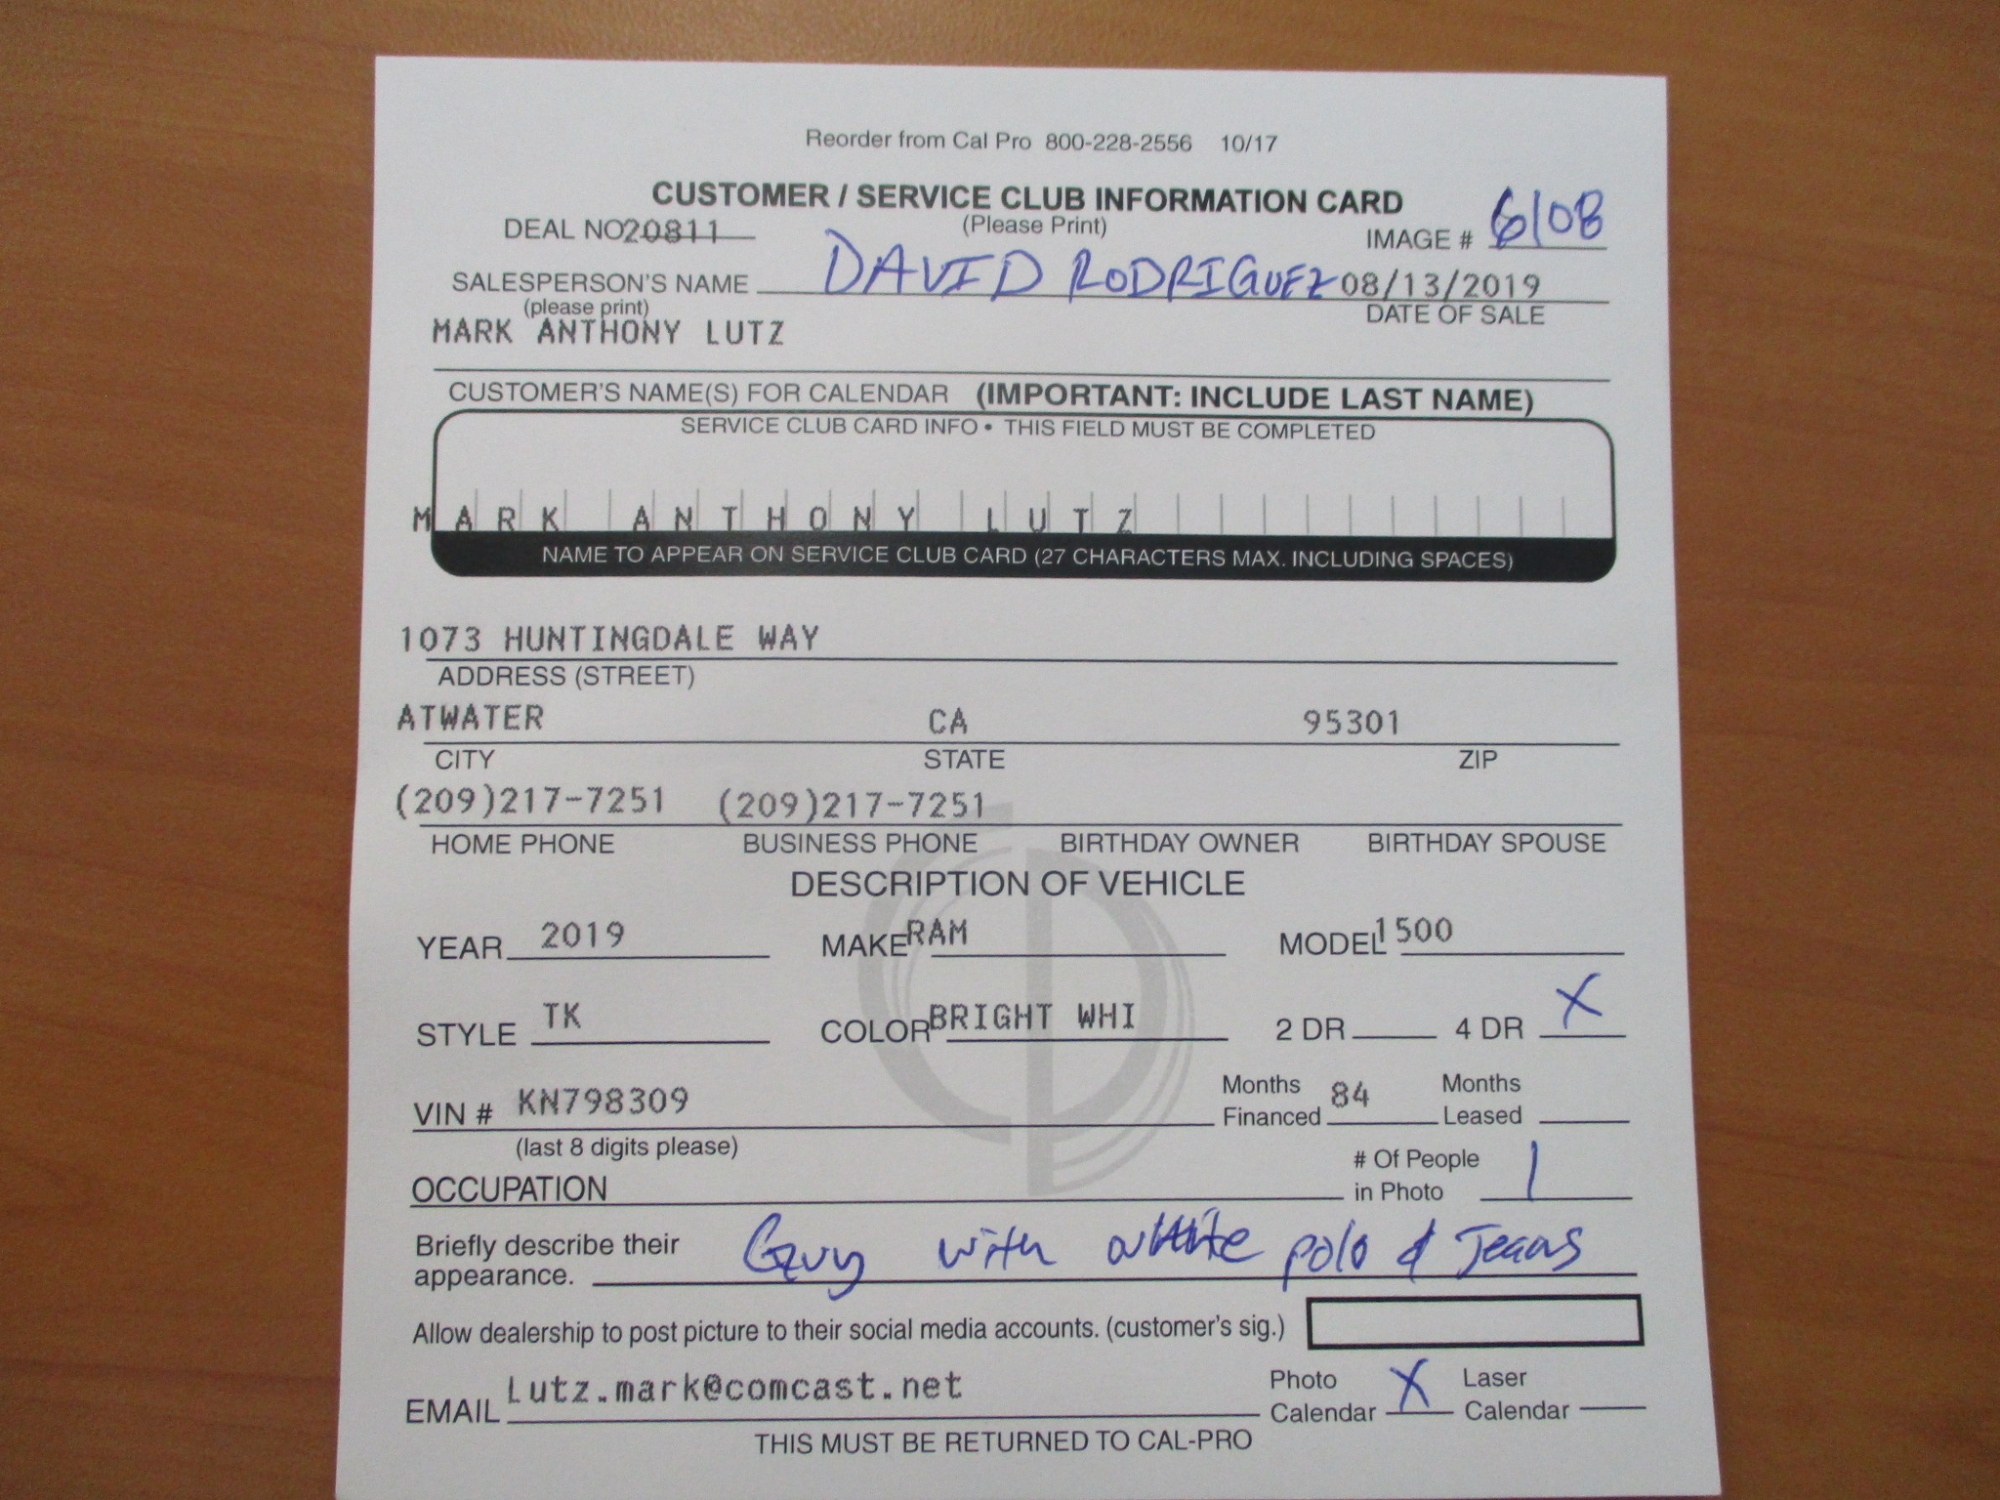 Reorder from Cal Pro 800-228-2556 10/17
CUSTOMER / SERVICE CLUB INFORMATION CARD
DEAL NO 20811 (Please Print) IMAGE # 6108
SALESPERSON'S NAME DAVID RODRIGUEZ 08/13/2019
(please print) DATE OF SALE
MARK ANTHONY LUTZ
CUSTOMER'S NAME(S) FOR CALENDAR (IMPORTANT: INCLUDE LAST NAME)
SERVICE CLUB CARD INFO • THIS FIELD MUST BE COMPLETED
MARK ANTHONY LUTZ
NAME TO APPEAR ON SERVICE CLUB CARD (27 CHARACTERS MAX. INCLUDING SPACES)
1073 HUNTINGDALE WAY
ADDRESS (STREET)
ATWATER CA 95301
CITY STATE ZIP
(209)217-7251 (209)217-7251
HOME PHONE BUSINESS PHONE BIRTHDAY OWNER BIRTHDAY SPOUSE
DESCRIPTION OF VEHICLE
YEAR 2019 MAKE RAM MODEL 1500
STYLE TK COLOR BRIGHT WHI 2 DR 4 DR X
VIN # KN798309 Months Financed 84 Months Leased
(last 8 digits please)
OCCUPATION # Of People in Photo 1
Briefly describe their appearance. Guy with white polo & Jeans
Allow dealership to post picture to their social media accounts. (customer's sig.)
EMAIL Lutz.mark@comcast.net Photo Calendar X Laser Calendar
THIS MUST BE RETURNED TO CAL-PRO